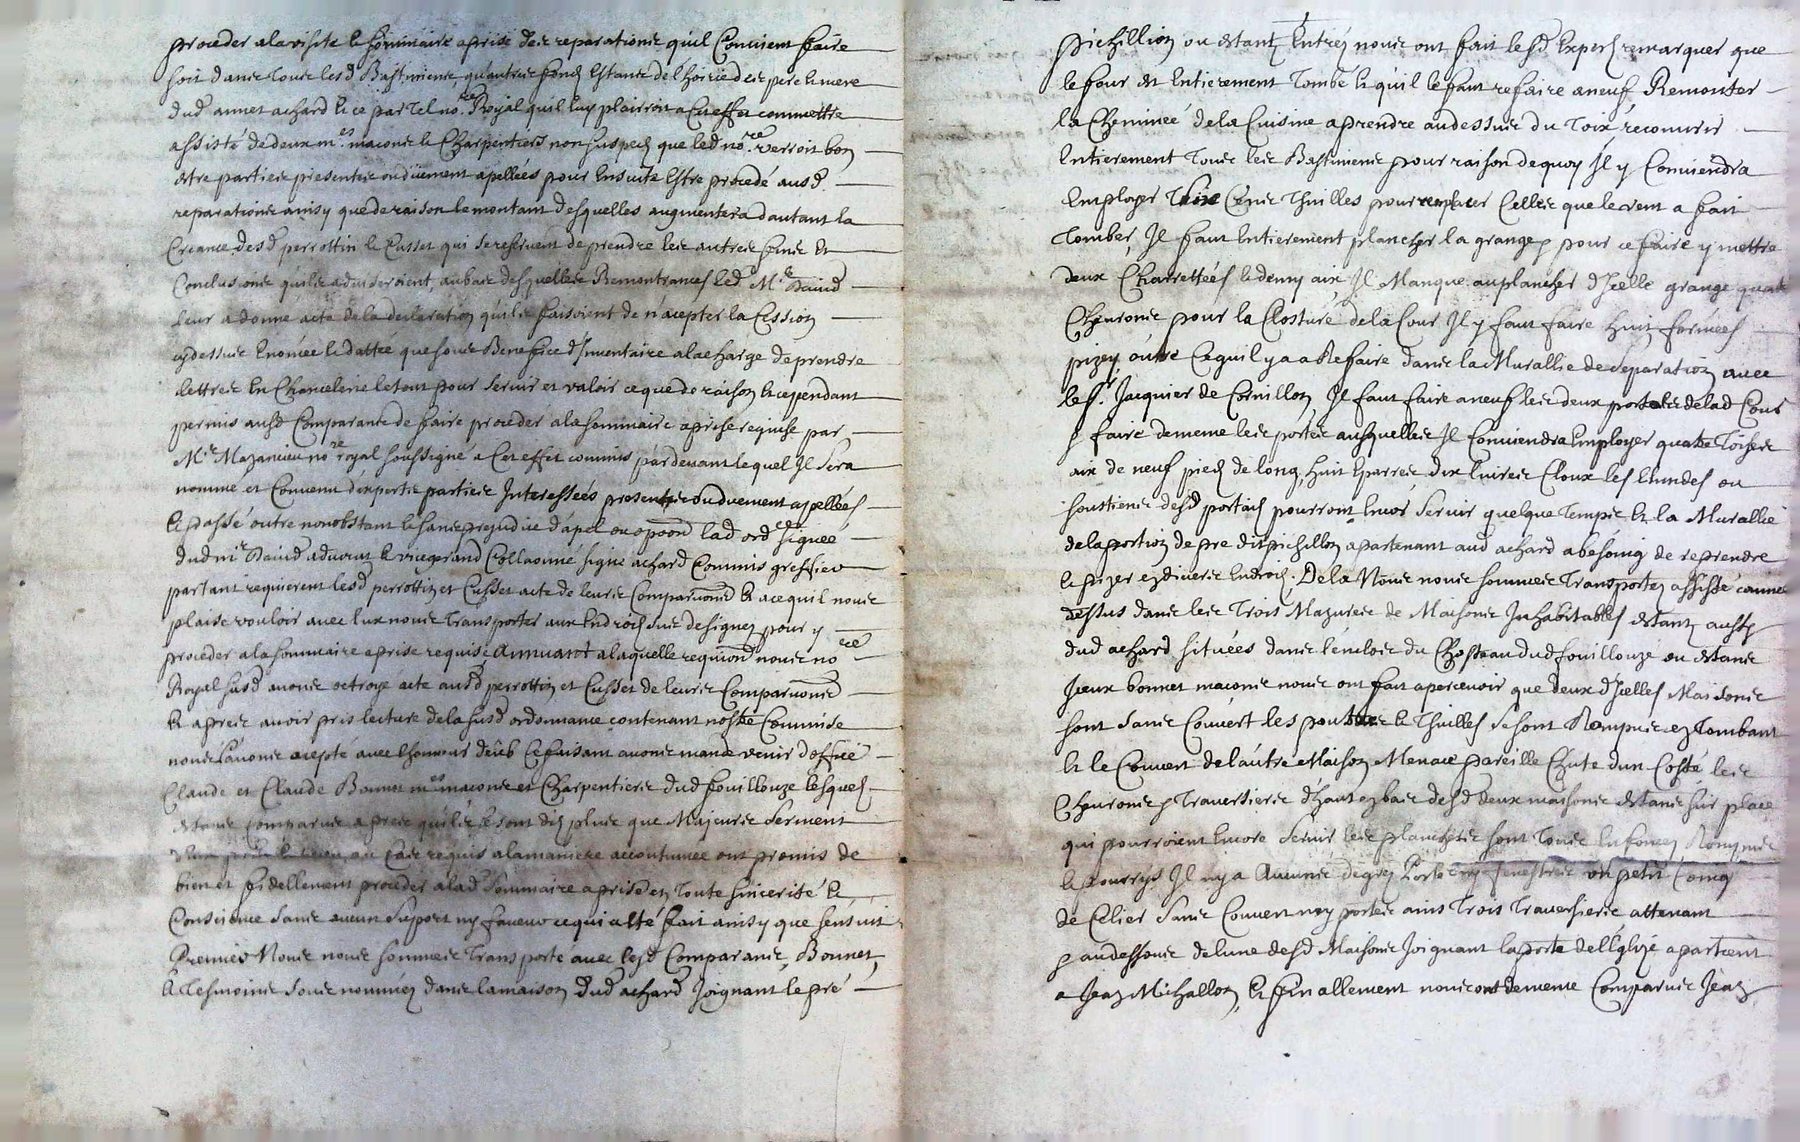 proceder a la visite et sommaire aprise des reparations quil Convient faire
soit dans tous lesd Bastimens, qu'autres fondz Estants de l'hoirie des pere et mere
dud annet achard et ce par tel no.re Royal quil luy plairroit a Cet effet commettre
assisté de deux m.es massons et Charpentiers non suspectz que led no.re verroit bon
estre parties presentes ou duement apellées pour Ensuite Estre procedé ausd
reparations ainsy que de raison le montant desquelles augmentera dautant la
Creance desd perrottin et Cusset qui se reservent de prendre les autres fins et
Conclusions quils adviseroient, au bas desquelles Remontrances led M.r David
leur a donné acte de la declaration quils faisoient de n'acepter la Cession
cydessus Enoncée et dattée que sous Benefice d'Inventaire a la charge de prendre
lettres En Chancelerie le tout pour servir et valoir ce que de raison et cependant
permis ausd Comparants de faire proceder a la sommaire aprise requise par
M.re Mazancieu no.re royal soussigné a Cet effet commis pardevant lequel Il sera
nommé et Convenu dexperts parties Interessées presentes ou duement apellées
et passé outre nonobstant et sans prejudice d'apel ou opoon lad ordce signée
dud m.r David advocat et vicegerand Collaonné signé achard Commis greffier
partant requierent lesd perrottin et Cusset acte de leurs Comparuons et a ce quil nous
plaise vouloir avec Eux nous transporter aux Endroitz sus designez pour y
proceder a la sommaire aprise requise a laquelle requion nous no.re
Royal susd avons octroyé acte ausd perrottin et Cusset de leurs Comparuons
et apres avoir pris lecture de la susd ordonnance contenant nostre Commise
nous l'avons acepté avec l'honneur deüb Ce faisant avons mandé venir d'office
Claude et Claude Bonnet m.es massons et Charpentiers dud fouillouze lesquelz
estants Comparus apres quils se sont ditz plus que Majeurs serment
au Cas requis a la maniere accoutumée ont promis de
bien et fidellement proceder a lad Sommaire aprise en toute sincerité et
Conscience sans aucun suport ny faveur ce qui a esté fait ainsy que sensuit
Premier Nous nous sommes transporté avec lesd Comparants, Bonnet,
et Tesmoins sous nommez dans la maison dud achard Joignant le pré
pichillion ou estantz Entrez nous ont fait lesd Expertz remarquer que
le four est Entierement Tombé et quil le faut refaire a neuf, Remonter
la Cheminée de la Cuisine a prendre audessus du Toix, recouvrir
Entierement tous les Bastimens pour raison de quoy Il y Conviendra
Employer Cens Thuilles pour remplacer Celles que le vent a fait
Tomber, Il faut Entierement plancher la grange, pour ce faire y mettre
deux Charrettées et demy aix, Il Manque au plancher d'Icelle grange quatre
Chevrons pour la Closture de la Cour Il y faut faire huit formées
pizey, outre Ce quil y a a Refaire dans la Murallie de separation avec
le S.r Jacquier de Cornillon, Il faut faire a neuf les deux portails de lad Cour
faire de meme les portes ausquelles Il Conviendra Employer quatre Toises
aix de neuf piedz de long, huit Eparres, dix livres Cloux les Etendes ou
soustiens desd portailz pourront Encor servir quelque Temps et la Murallie
de la portion de pre dit pichillon apartenant aud achard a besoing de reprendre
et pizer en divers Endroitz. De la Nous nous sommes transportez assisté comme
dessus dans les Trois Mazures de Maisons Inhabitables estantz aussy
dud achard situées dans l'enclos du Chasteau dud fouillouze ou estans
Iceux bonnet massons nous ont fait apercevoir que deux d'Icelles Maisons
sont sans Couvert les poutres et Thuilles se sont Rompus en tombant
et le Couvert de l'autre Maison Menace pareille Chute dun Costé les
Chevrons Traversiers d'haut en bas desd deux maisons estans sur place
qui pourroient Encore servir les planchers sont Tous Enfoncez Rompus
et pourrys Il ny a Aucunes degrez Portes ny fenestres un petit Coing
de Celier sans Couvert ny portes ains Trois Traversiers attenant
audessous de l'une desd Maisons Joignant la porte de l'Eglize apartient
a Jean Michallon, Et finallement nous ont de meme Comparus Jean